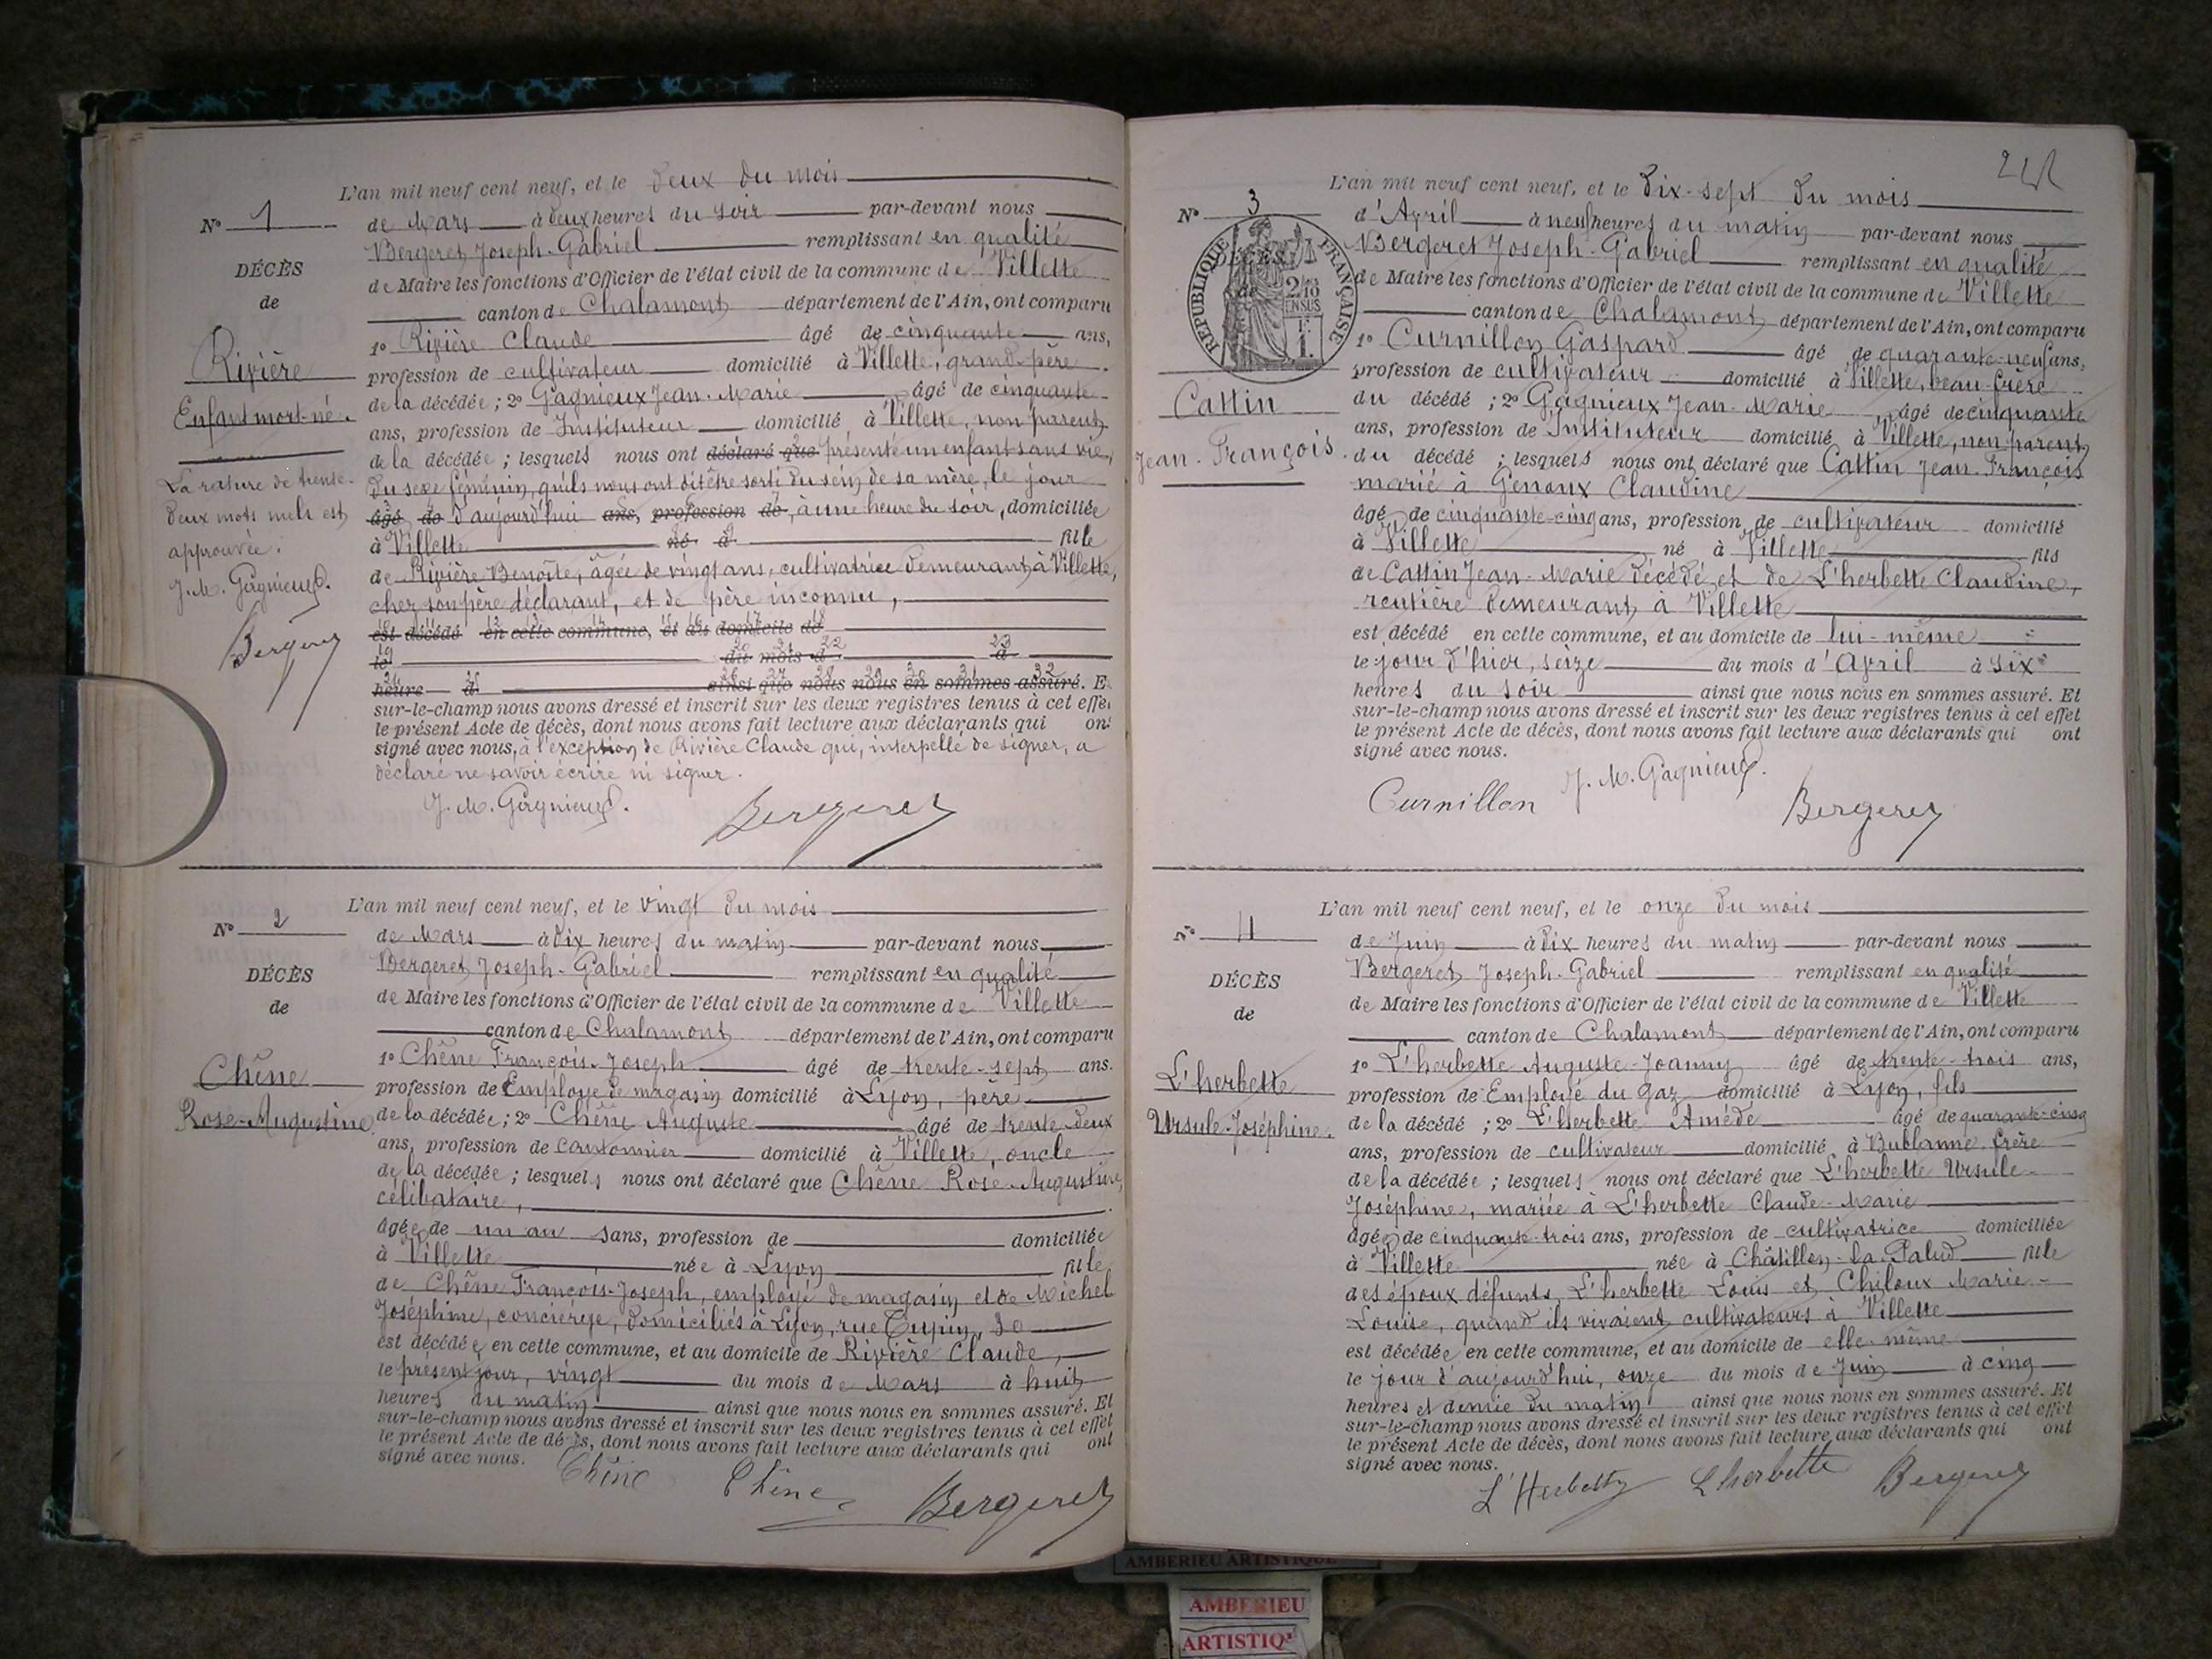 L'an mil neuf cent neuf, et le deux du mois
N° 1
de Mars à deux heures du soir par-devant nous
Bergeret Joseph-Gabriel remplissant en qualité
de Maire les fonctions d'Officier de l'état civil de la commune de Villette
canton de Chalamont département de l'Ain, ont comparu
1° Rivière Claude âgé de cinquante ans,
profession de cultivateur domicilié à Villette, grand-père
de la décédée ; 2° Gagnieux Jean-Marie âgé de cinquante
ans, profession de Instituteur domicilié à Villette, non parent
de la décédée ; lesquels nous ont déclaré que présenté un enfant sans vie,
du sexe féminin, qu'ils nous ont dit être sorti du sein de sa mère, le jour
âgé de d'aujourd'hui ans, profession de, à une heure du soir, domiciliée
à Villette né à fille
de Rivière Benoîte, âgée de vingt ans, cultivatrice demeurant à Villette,
chez son père déclarant, et de père inconnu,
est décédé en cette commune, et au domicile de
le du mois d à
heure à ainsi que nous nous en sommes assuré. E
sur-le-champ nous avons dressé et inscrit sur les deux registres tenus à cet effe
le présent Acte de décès, dont nous avons fait lecture aux déclarants qui on
signé avec nous, à l'exception de Rivière Claude qui, interpellé de signer, a
déclaré ne savoir écrire ni signer.
J. M. Gagnieux. Bergeret
DÉCÈS
de
Rivière
Enfant mort-né.
La rature de trente-
deux mots nuls est
approuvée.
J. M. Gagnieux.
Bergeret
L'an mil neuf cent neuf, et le vingt du mois
N° 2
de Mars à dix heures du matin par-devant nous
Bergeret Joseph-Gabriel remplissant en qualité
de Maire les fonctions d'Officier de l'état civil de la commune de Villette
canton de Chalamont département de l'Ain, ont comparu
1° Chêne François-Joseph âgé de trente-sept ans.
profession de Employé de magasin domicilié à Lyon, père
de la décédée ; 2° Chêne Auguste âgé de trente-deux
ans, profession de cantonnier domicilié à Villette, oncle
de la décédée ; lesquels nous ont déclaré que Chêne Rose-Augustine,
célibataire,
âgée de un an ans, profession de domiciliée
à Villette née à Lyon fille
de Chêne François-Joseph, employé de magasin et de Michel
Joséphine, concierge, domiciliés à Lyon, rue Tupin, 30
est décédée en cette commune, et au domicile de Rivière Claude,
le présent jour, vingt du mois de Mars à huit
heures du matin ainsi que nous nous en sommes assuré. Et
sur-le-champ nous avons dressé et inscrit sur les deux registres tenus à cet effet
le présent Acte de décès, dont nous avons fait lecture aux déclarants qui ont
signé avec nous.
Chêne Chêne Bergeret
DÉCÈS
de
Chêne
Rose-Augustine.
L'an mil neuf cent neuf, et le dix-sept du mois
N° 3
d'Avril à neuf heures du matin par-devant nous
Bergeret Joseph-Gabriel remplissant en qualité
de Maire les fonctions d'Officier de l'état civil de la commune de Villette
canton de Chalamont département de l'Ain, ont comparu
1° Curnillon Gaspard âgé de quarante-neuf ans,
profession de cultivateur domicilié à Villette, beau-frère
du décédé ; 2° Gagnieux Jean-Marie âgé de cinquante
ans, profession de Instituteur domicilié à Villette, non parent
du décédé ; lesquels nous ont déclaré que Cattin Jean-François
marié à Genoux Claudine
âgé de cinquante-cinq ans, profession de cultivateur domicilié
à Villette né à Villette fils
de Cattin Jean-Marie décédé et de L'herbette Claudine,
rentière demeurant à Villette
est décédé en cette commune, et au domicile de lui-même
le jour d'hier, seize du mois d'Avril à six
heures du soir ainsi que nous nous en sommes assuré. Et
sur-le-champ nous avons dressé et inscrit sur les deux registres tenus à cet effet
le présent Acte de décès, dont nous avons fait lecture aux déclarants qui ont
signé avec nous.
Curnillon J. M. Gagnieux. Bergeret
DÉCÈS
de
RÉPUBLIQUE FRANÇAISE
Cattin
Jean-François.
L'an mil neuf cent neuf, et le onze du mois
N° 4
de Juin à dix heures du matin par-devant nous
Bergeret Joseph-Gabriel remplissant en qualité
de Maire les fonctions d'Officier de l'état civil de la commune de Villette
canton de Chalamont département de l'Ain, ont comparu
1° L'herbette Auguste-Joanny âgé de trente-trois ans,
profession de Employé du gaz domicilié à Lyon, fils
de la décédé ; 2° L'herbette Amédé âgé de quarante-cinq
ans, profession de cultivateur domicilié à Bublanne frère
de la décédée ; lesquels nous ont déclaré que L'herbette Ursule-
Joséphine, mariée à L'herbette Claude-Marie
âgée de cinquante-trois ans, profession de cultivatrice domiciliée
à Villette née à Châtillon-la-Palud fille
des époux défunts L'herbette Louis et Chiloux Marie-
Louise, quand ils vivaient cultivateurs à Villette
est décédée en cette commune, et au domicile de elle-même
le jour d'aujourd'hui, onze du mois de Juin à cinq
heures et demie du matin ainsi que nous nous en sommes assuré. Et
sur-le-champ nous avons dressé et inscrit sur les deux registres tenus à cet effet
le présent Acte de décès, dont nous avons fait lecture aux déclarants qui ont
signé avec nous.
L'Herbette Lherbette Bergeret
DÉCÈS
de
L'herbette
Ursule-Joséphine.
AMBERIEU ARTISTIQUE
AMBERIEU
ARTISTIQ